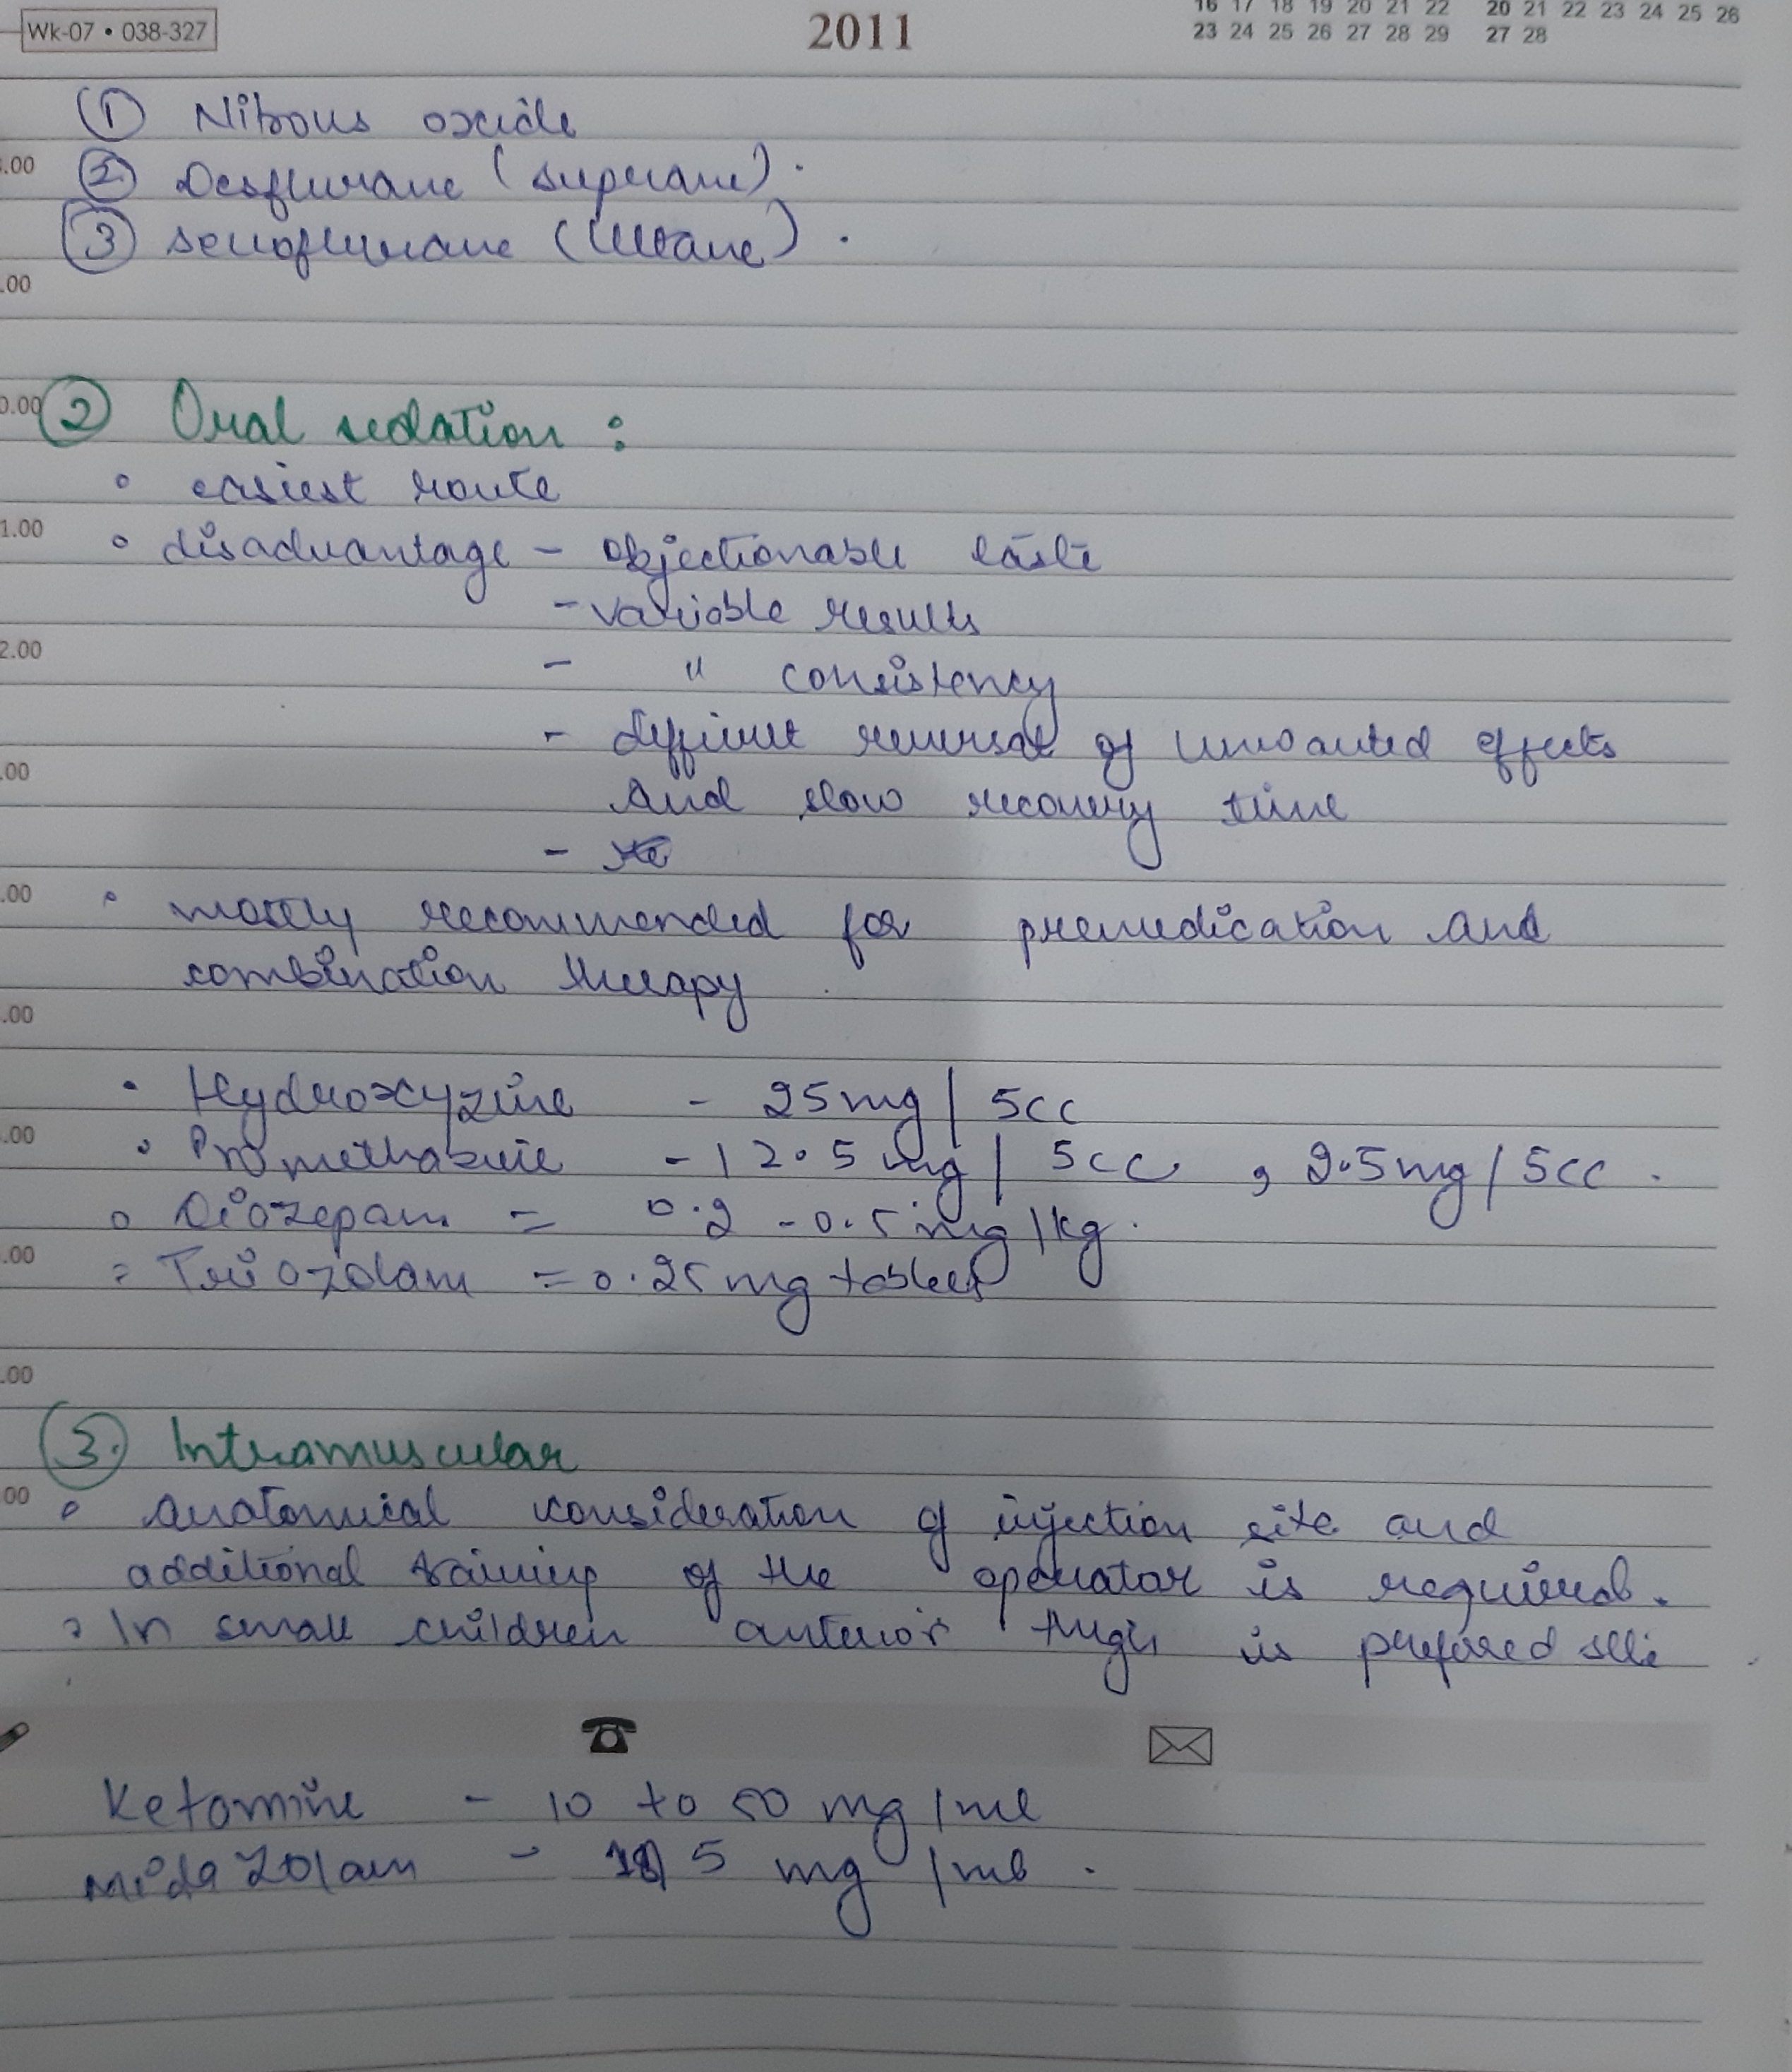 Wk-07 • 038-327
2011
16 17 18 19 20 21 22 20 21 22 23 24 25 26
23 24 25 26 27 28 29 27 28
① Nitrous oxide
② Desflurane (suprane).
③ sevoflurane (Ultane).
② Oral sedation :
easiest route
disadvantage - objectionable taste
- variable results
- " consistency
- difficult reversal of unwanted effects
and slow recovery time
-
mostly recommended for premedication and
combination therapy
Hydroxyzine - 25mg / 5cc
Promethazine - 12.5 mg / 5cc , 2.5mg / 5cc .
Diazepam = 0.2 - 0.5 mg /kg.
Triazolam = 0.25 mg tablet
③. Intramuscular
anatomical consideration of injection site and
additional training of the operator is required.
In small children anterior thigh is prefered
Ketamine - 10 to 50 mg /ml
Midazolam - 5 mg /ml .